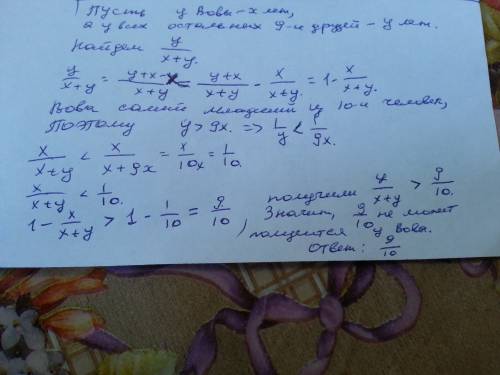 Пусть у Вовы - x лет,
а у всех остальных 9-и друзей - y лет.
Найдем y/(x+y).
y/(x+y) = (y+x-x)/(x+y) = (y+x)/(x+y) - x/(x+y) = 1 - x/(x+y).
Вова самый младший из 10-и человек,
Поэтому y > 9x. => 1/y < 1/9x.
x/(x+y) < x/(x+9x) = x/10x = 1/10.
x/(x+y) < 1/10.
1 - x/(x+y) > 1 - 1/10 = 9/10
получили y/(x+y) > 9/10.
Значит, 9/10 не может
у Вовы.
Ответ: 9/10